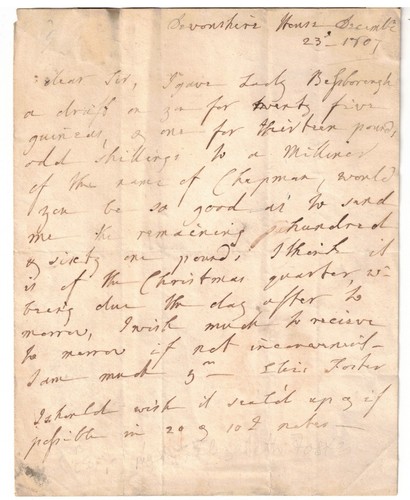 Devonshire House Decembr
23d 1807
Dear Sir, I gave Lady Bessborough
a draft on you for twenty five
guineas, & one for thirteen pounds
odd shillings to a Milliner
of the name of Chapman, would
you be so good as to send
me the remaining hundred
& sixty one pounds. I think it
is of the Christmas quarter, wh
being due the day after to
morrow, I wish much to receive
to morrow if not inconvenient
I am much yrs Eliz Foster
I should wish it seal'd up & if
possible in 20 & 10£ notes —